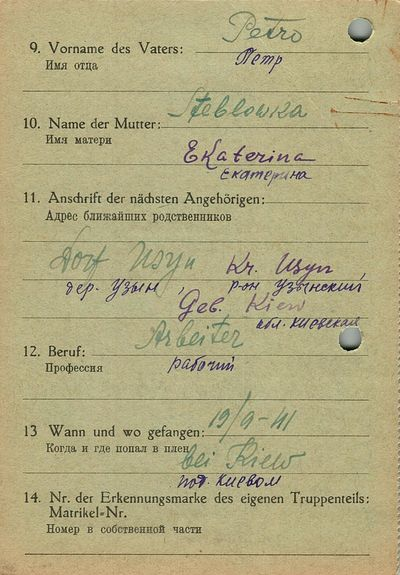 Petro
9. Vorname des Vaters:
Имя отца
Петр
Steblowka
10. Name der Mutter:
Имя матери
Ekaterina
Екатерина
11. Anschrift der nächsten Angehörigen:
Адрес ближайших родственников
Dorf Usyn, Kr. Usyn,
дер. Узын, р-он Узынский
Geb. Kiew
обл. киевская
Arbeiter
12. Beruf:
Профессия
рабочий
19/9-41
13 Wann und wo gefangen:
Когда и где попал в плен
bei Kiew
под. Киевом
14. Nr. der Erkennungsmarke des eigenen Truppenteils:
Matrikel-Nr.
Номер в собственной части